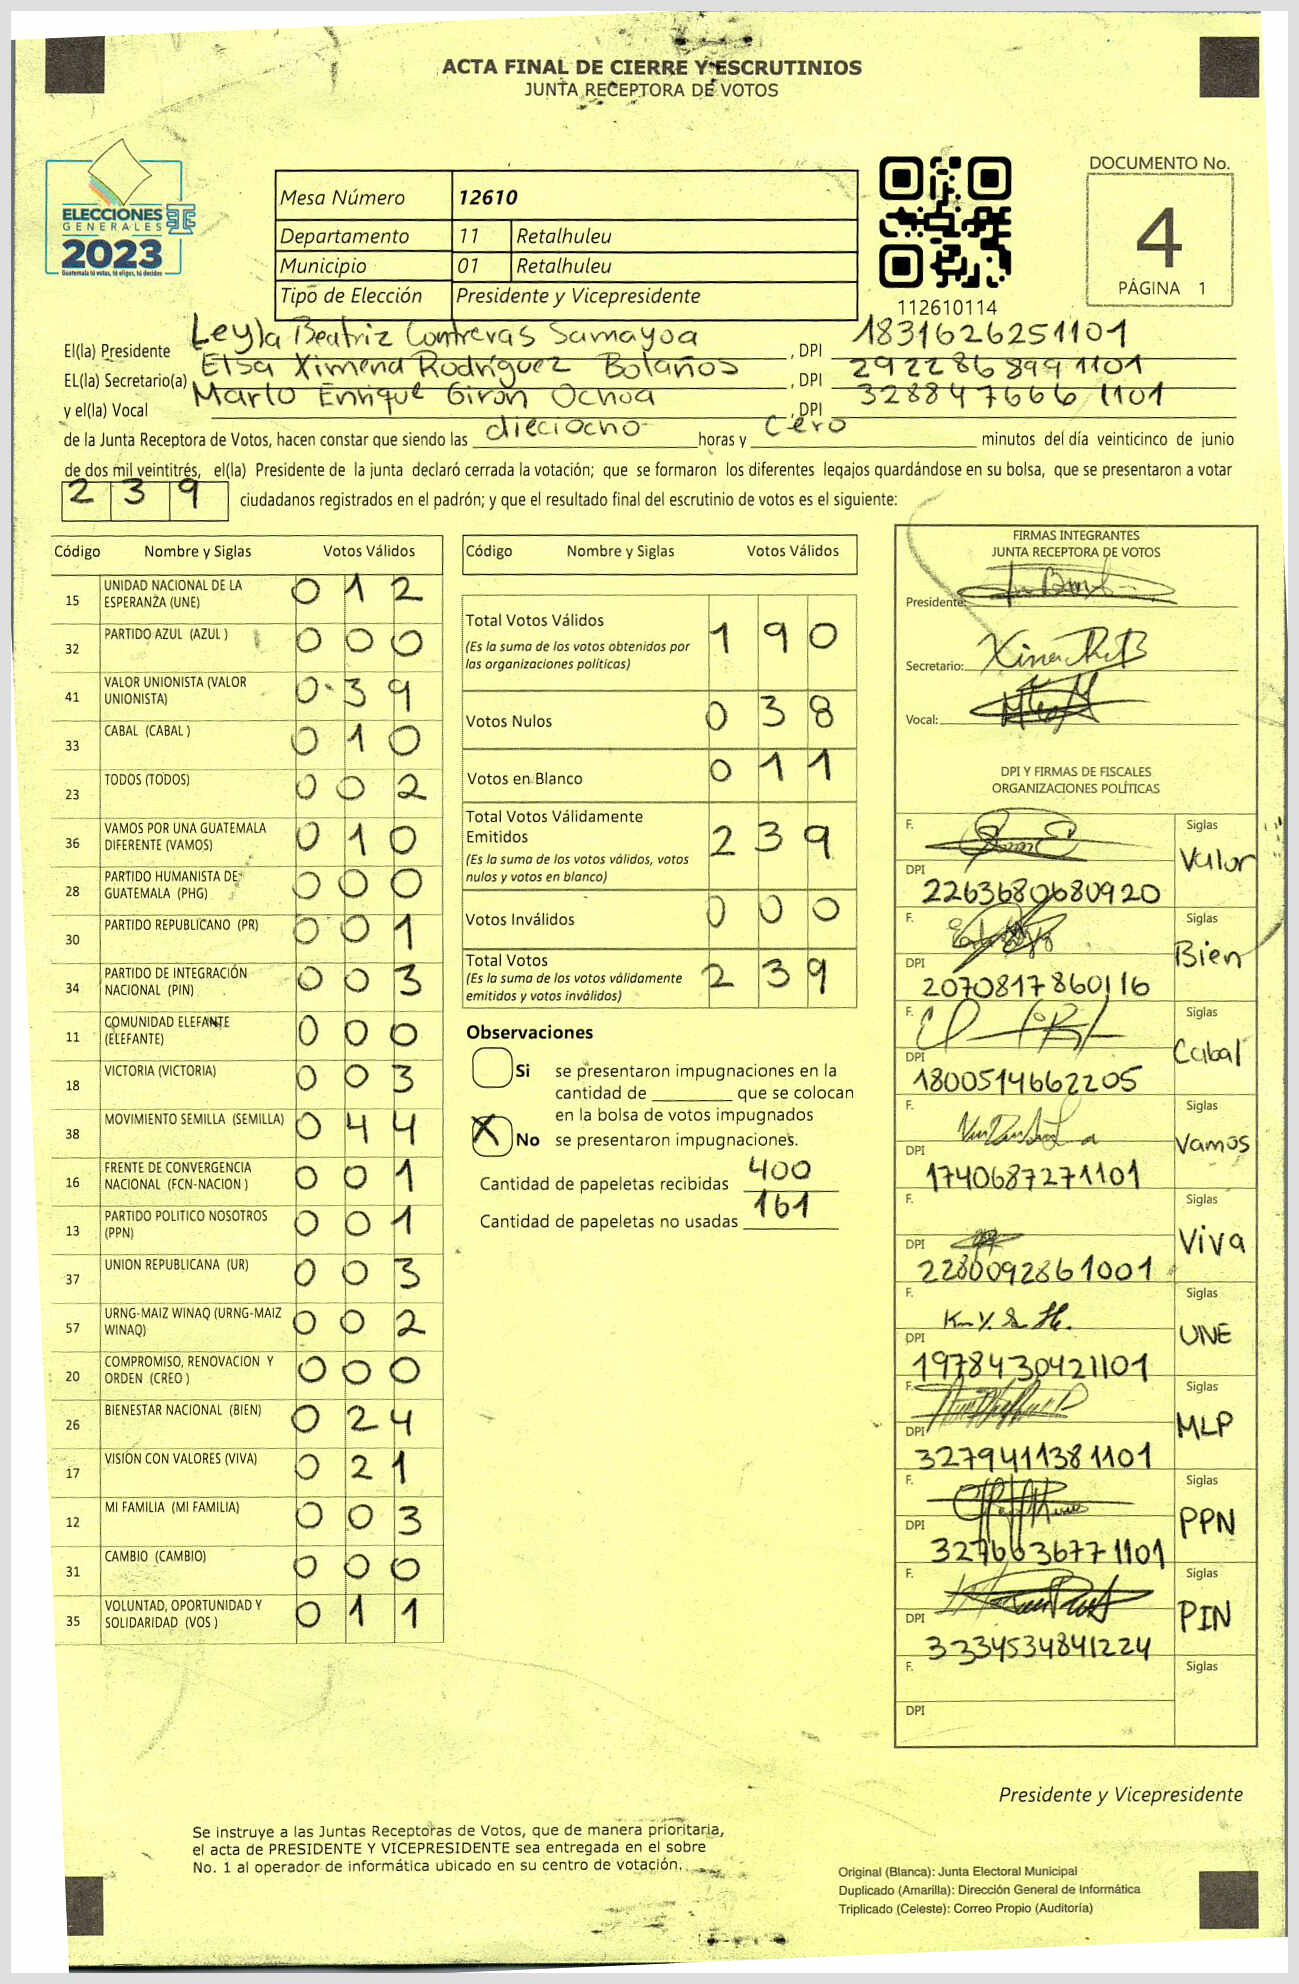 ACTA FINAL DE CIERRE Y ESCRUTINIOS
JUNTA RECEPTORA DE VOTOS
ELECCIONES
GENERALES
2023
Guatemala tú votas, tú eliges, tú decides
Mesa Número 12610
Departamento 11 Retalhuleu
Municipio 01 Retalhuleu
Tipo de Elección Presidente y Vicepresidente
112610114
DOCUMENTO No.
4
PÁGINA 1
El(la) Presidente Leyla Beatriz Contreras Samayoa , DPI 1831626251101
EL(la) Secretario(a) Elsa Ximena Rodríguez Bolaños , DPI 2922868991101
y el(la) Vocal Marlo Enrique Giron Ochoa , DPI 3288476661101
de la Junta Receptora de Votos, hacen constar que siendo las dieciocho horas y cero minutos del día veinticinco de junio
de dos mil veintitrés, el(la) Presidente de la junta declaró cerrada la votación; que se formaron los diferentes legajos quardándose en su bolsa, que se presentaron a votar
239 ciudadanos registrados en el padrón; y que el resultado final del escrutinio de votos es el siguiente:
Código Nombre y Siglas Votos Válidos
15 UNIDAD NACIONAL DE LA ESPERANZA (UNE) 012
32 PARTIDO AZUL (AZUL ) 000
41 VALOR UNIONISTA (VALOR UNIONISTA) 039
33 CABAL (CABAL ) 010
23 TODOS (TODOS) 002
36 VAMOS POR UNA GUATEMALA DIFERENTE (VAMOS) 010
28 PARTIDO HUMANISTA DE GUATEMALA (PHG) 000
30 PARTIDO REPUBLICANO (PR) 001
34 PARTIDO DE INTEGRACIÓN NACIONAL (PIN) 003
11 COMUNIDAD ELEFANTE (ELEFANTE) 000
18 VICTORIA (VICTORIA) 003
38 MOVIMIENTO SEMILLA (SEMILLA) 044
16 FRENTE DE CONVERGENCIA NACIONAL (FCN-NACION ) 001
13 PARTIDO POLITICO NOSOTROS (PPN) 001
37 UNION REPUBLICANA (UR) 003
57 URNG-MAIZ WINAQ (URNG-MAIZ WINAQ) 002
20 COMPROMISO, RENOVACION Y ORDEN (CREO ) 000
26 BIENESTAR NACIONAL (BIEN) 024
17 VISION CON VALORES (VIVA) 021
12 MI FAMILIA (MI FAMILIA) 003
31 CAMBIO (CAMBIO) 000
35 VOLUNTAD, OPORTUNIDAD Y SOLIDARIDAD (VOS ) 011
Código Nombre y Siglas Votos Válidos
Total Votos Válidos 190
(Es la suma de los votos obtenidos por
las organizaciones políticas)
Votos Nulos 038
Votos en Blanco 011
Total Votos Válidamente
Emitidos 239
(Es la suma de los votos válidos, votos
nulos y votos en blanco)
Votos Inválidos 000
Total Votos 239
(Es la suma de los votos válidamente
emitidos y votos inválidos)
Observaciones
Si se presentaron impugnaciones en la
cantidad de ________ que se colocan
en la bolsa de votos impugnados
X No se presentaron impugnaciones.
Cantidad de papeletas recibidas 400
Cantidad de papeletas no usadas 161
FIRMAS INTEGRANTES
JUNTA RECEPTORA DE VOTOS
Presidente:
Secretario:
Vocal:
DPI Y FIRMAS DE FISCALES
ORGANIZACIONES POLÍTICAS
F. Siglas Valor
DPI 2263680680920
F. Siglas Bien
DPI 2070817860116
F. Siglas Cabal
DPI 1800514662205
F. Siglas Vamos
DPI 1740687271101
F. Siglas Viva
DPI 2280092861001
F. Siglas UNE
DPI 1978430421101
F. Siglas MLP
DPI 3279411381101
F. Siglas PPN
DPI 3276636771101
F. Siglas PIN
DPI 3334534841224
F. Siglas
DPI
Presidente y Vicepresidente
Se instruye a las Juntas Receptoras de Votos, que de manera prioritaria,
el acta de PRESIDENTE Y VICEPRESIDENTE sea entregada en el sobre
No. 1 al operador de informática ubicado en su centro de votación.
Original (Blanca): Junta Electoral Municipal
Duplicado (Amarilla): Dirección General de Informática
Triplicado (Celeste): Correo Propio (Auditoría)